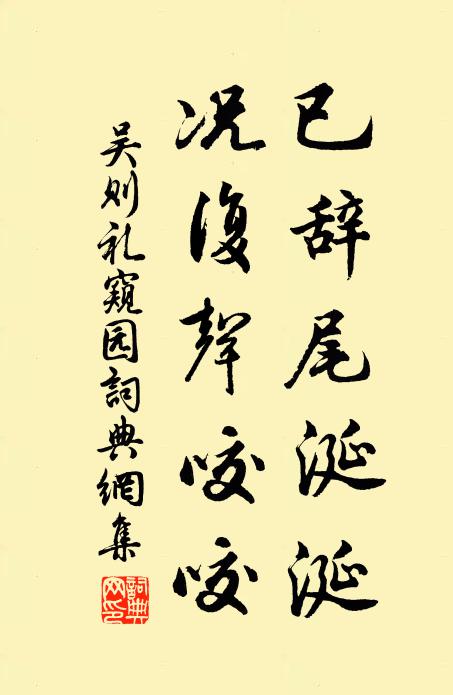 已辞尾涎涎
况復聲咬咬
吴则礼窥园詞典網集
詞典网印